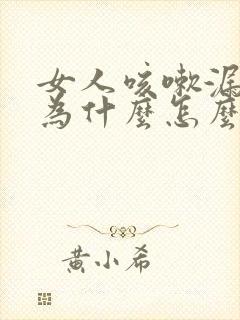 女人咳嗽漏
為什麼怎麼
黃小希